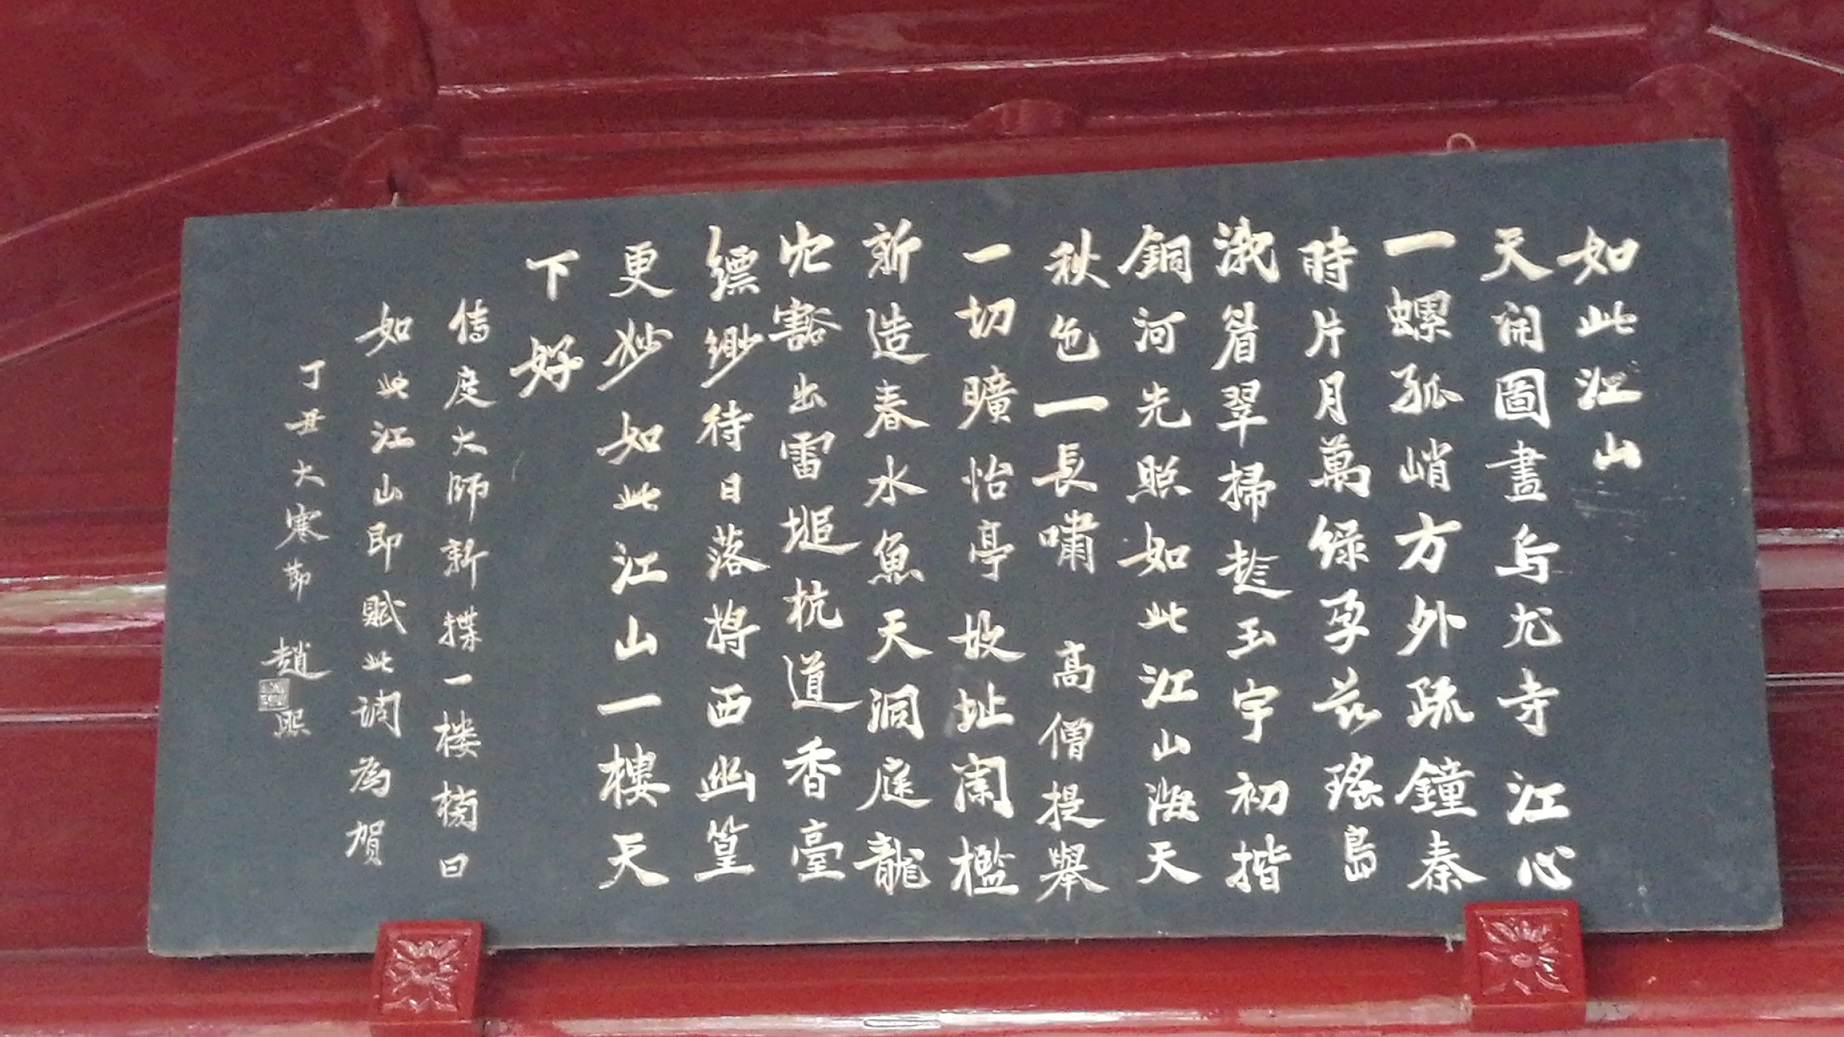 如此江山
天開圖畫烏尤寺江心
一螺孤峭方外疏鐘秦
時片月萬綠孕茲瑤島
涐眉翠掃趁玉宇初揩
銅河先照如此江山漲天
秋色一長嘯 高僧提舉
一切曠怡亭故址闌檻
新造春水魚天洞庭龍
穴豁出雷塠杭道香臺
縹緲待日落摀西幽篁
更妙如此江山一樓天
下好
傳度大師新揲一楼榜曰
如此江山即賦此调為賀
丁丑大寒節 趙熙